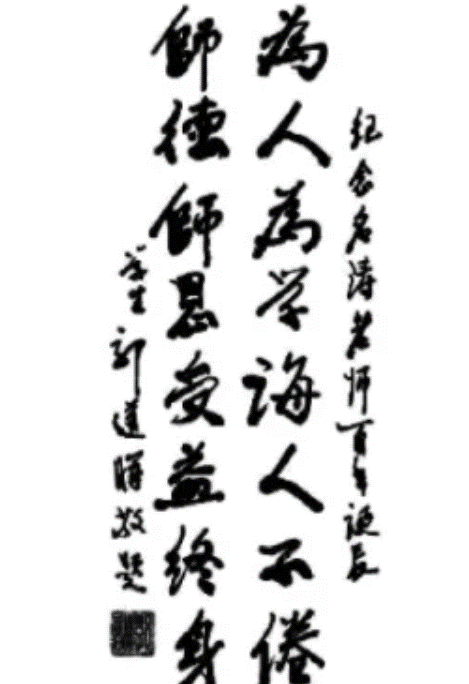 纪念名涛老师百年诞辰
為人為学誨人不倦
師德師恩受益终身
学生郭道暉敬题